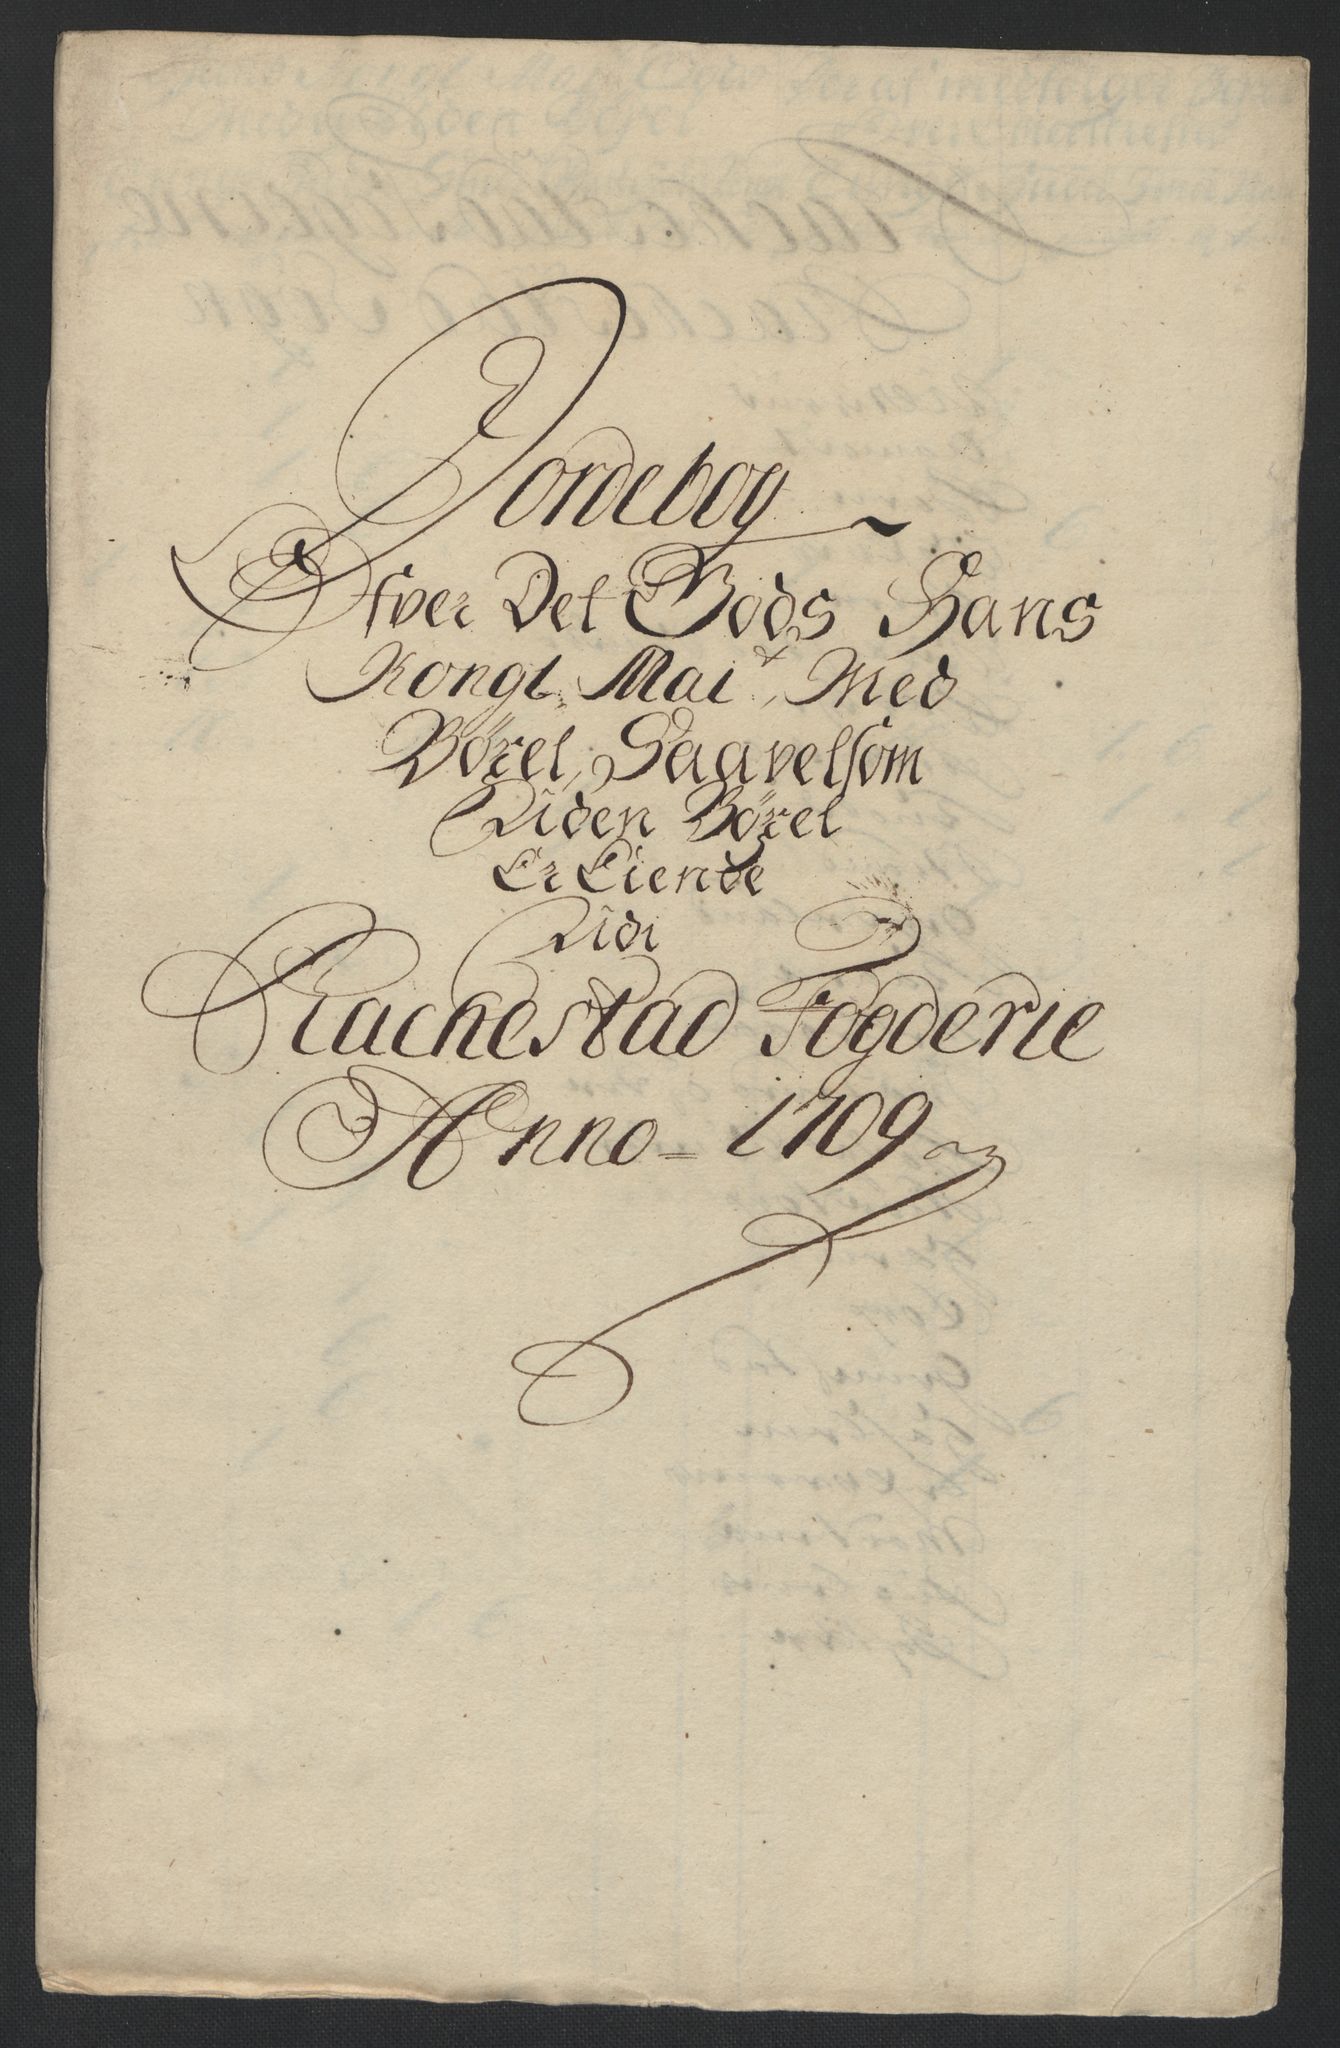 Jordebog
Ofver Det Gods Hans
Kongl. Mait. Med
Börel, Saavelsom
Uden Börel
Er Eiende
Udi
Rackestad Fogderie
Anno = 1709